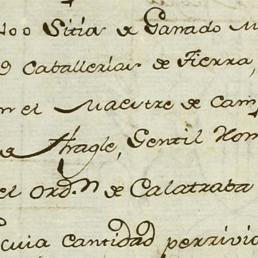 Sitios de Ganado M
Caballerias de Tierra,
en el Maestre de Cam
de Fragle, Gentil Hom
el Ordⁿ de Calatraba
cuia cantidad perzivio